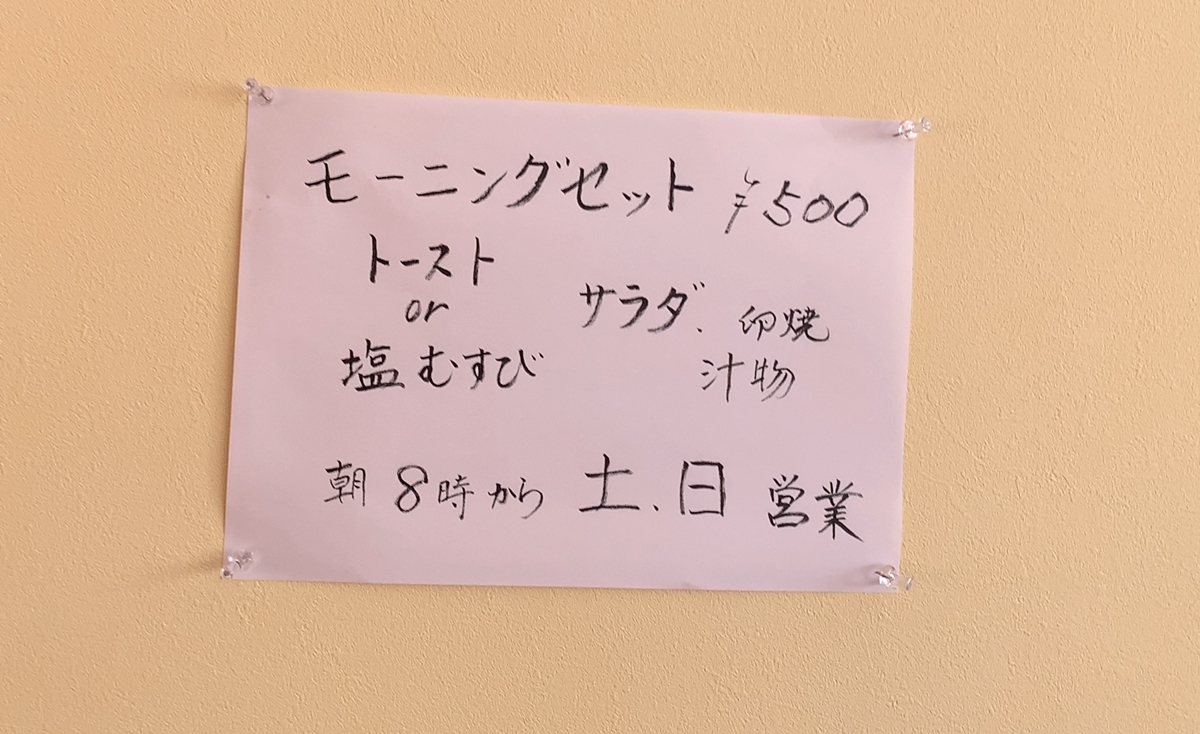 モーニングセット ¥500
トースト
or
塩むすび
サラダ、卵焼
汁物
朝 8時から 土、日 営業